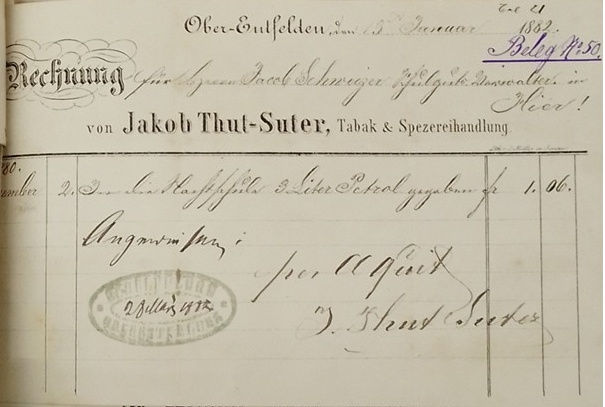 Ober-Entfelden, den 15 Januar 1882.
Beleg No 50.
Rechnung für Herrn Jacob Schweizer Schulguts Verwalter in
Hier!
von Jakob Thut-Suter, Tabak & Spezereihandlung.
2. In die Nachtschule 3 Liter Petrol gegeben fr 1. 06.
Angewiesen:
per Aquit
J. Thut Suter
SCHULPFLEGE
28 März 1882
OBERENTFELDEN